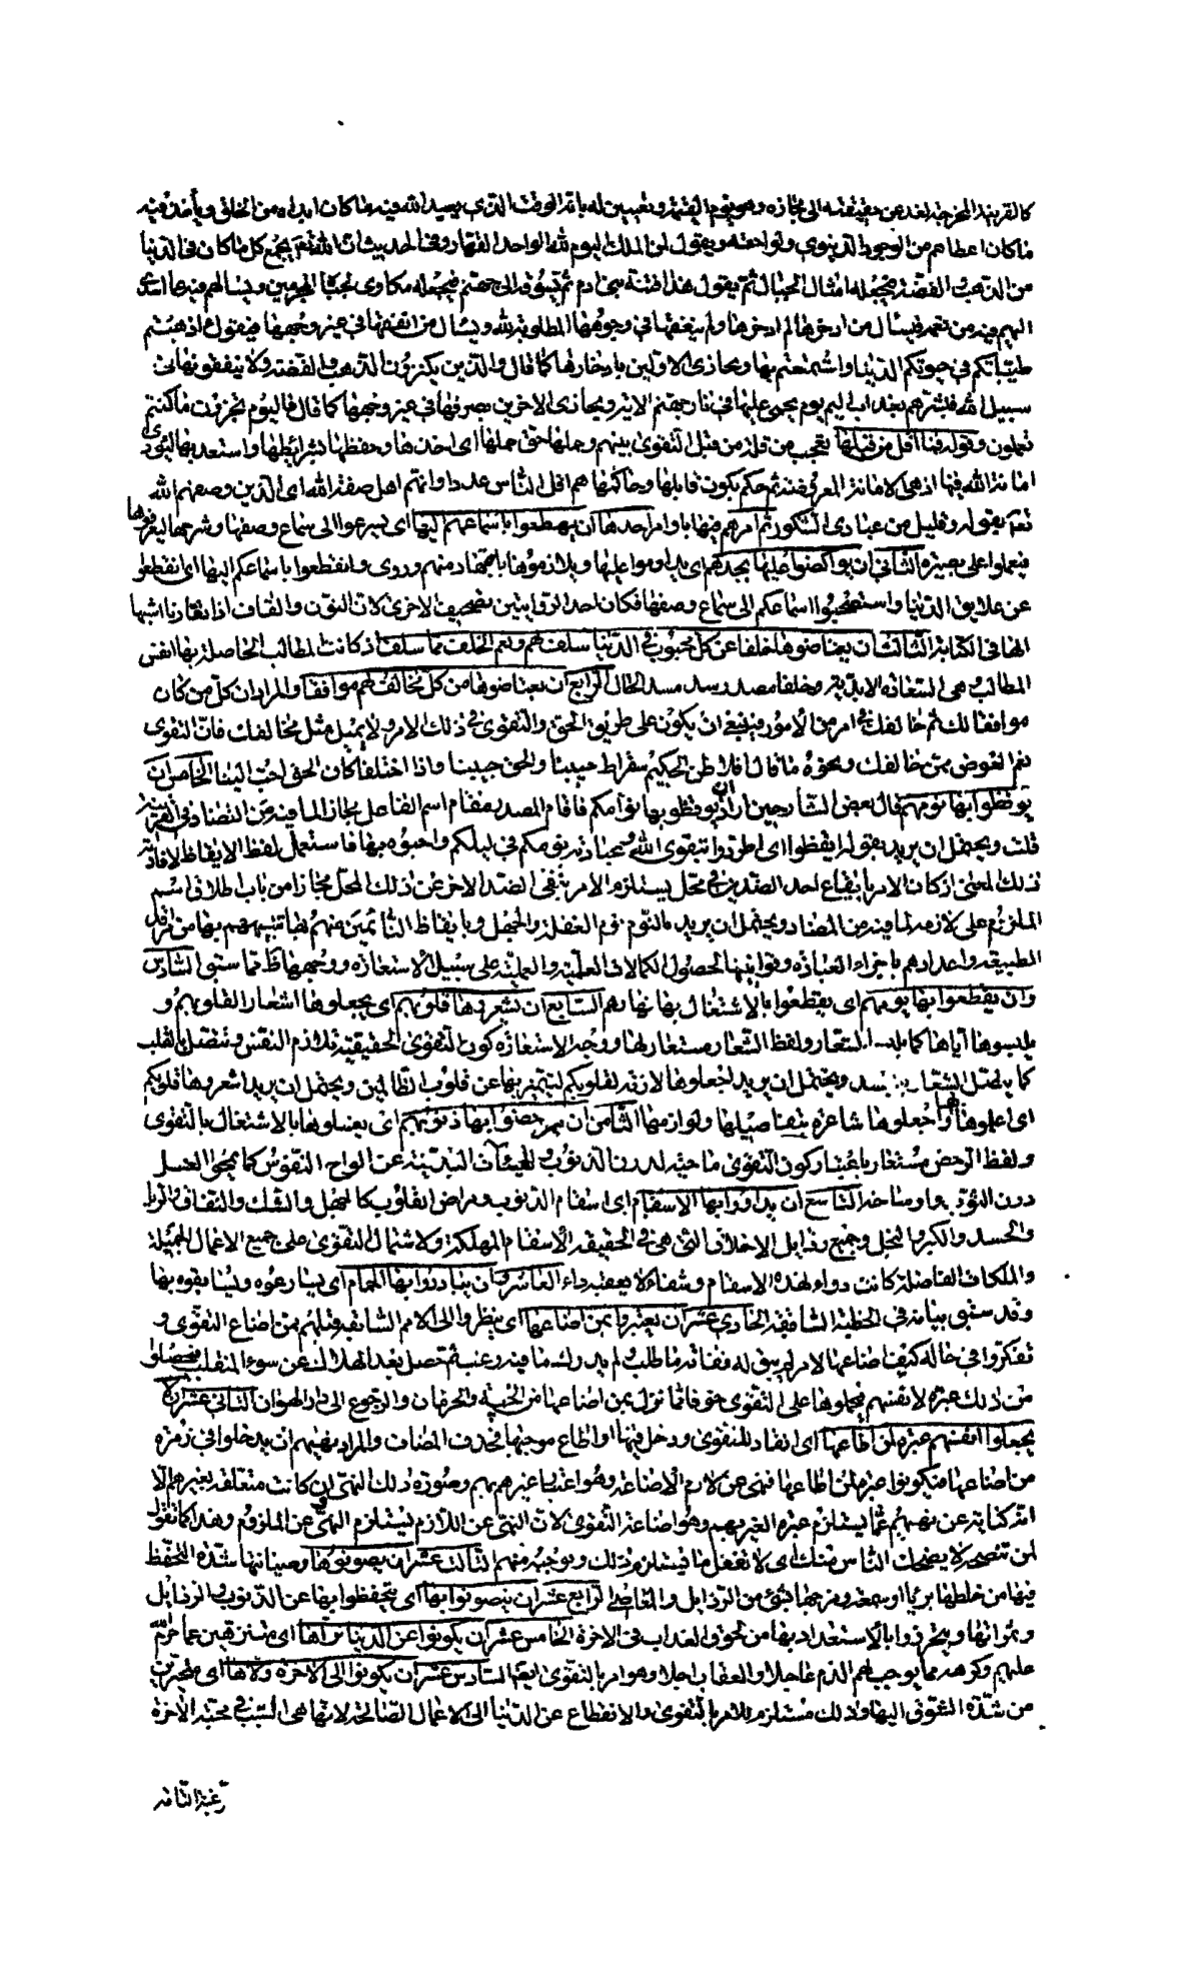 كالقرينة المخرجة لغد عن حقيقته الى مجازه وهو يوم القيمة وتعيين له بانه الوقت الذى يعيد الله فيه ما كان ابداه من الخلق ويأخذ فيه
ما كان اعطاهم من الوجود الدنيوى ولواحقه ويقول لمن الملك اليوم لله الواحد القهار وفى الحديث ان الله تعم يجمع كل ما كان فى الدنيا
من الذهب والفضة فيجعله امثال الجبال ثم يقول هذا فتنة بنى ادم ثم يسوقه الى جهنم فيجعله مكاوى لجباه المجرمين ويسألهم فيه عما اسدى
اليهم فيه من نعمه فيسأل من ادخرها لم ادخرها ولم ينفقها فى وجوهها المطلوبة لله ويسأل من انفقها فى غير وجهها فيقول اذهبتم
طيباتكم فى حيوتكم الدنيا واستمتعتم بها ويجازى الاولين بادخارها كما قال والذين يكنزون الذهب والفضة ولا ينفقونها فى
سبيل الله فبشرهم بعذاب اليم يوم يحمى عليها فى نار جهنم الاية ويجازى الاخرين بصرفها فى غير وجهها كما قال فاليوم تجزون ما كنتم
تعملون وقوله فما اقل من قبلها تعجب من قلة من قبل التقوى بينهم وحملها حق حملها اى اخذها وحفظها بشرائطها واستعد بها ليؤدى
امانة الله فيها اذ هى الامانة المعروضة ثم حكم بكون قابلها وحاملها هم اقل الناس عددا وانهم اهل صفة الله اى الذين وصفهم الله
تعم بقوله وقليل من عبادى الشكور ثم امرهم فيها باوامر احدها ان يهطعوا باسماعهم اليها اى يسرعوا الى سماع وصفها وشرحها ليعرفوها
فيعملوا على بصيرة الثانى ان يواكظوا عليها بجدهم اى يداوموا عليها ويلازموها باجتهاد منهم وروى وانقطعوا باسماعكم اليها اى انقطعوا
عن علايق الدنيا واستصحبوا اسماعكم الى سماع وصفها فكان احد الروايتين تصحيف الاخرى لان النون والقاف اذا تقاربا اشبها
الهاء فى الكتابة الثالث ان يعتاضوها خلفا عن كل محبوب فى الدنيا سلف لهم ونعم الخلف مما سلف اذ كانت المطالب الحاصلة بها انفس
المطالب وهى السعادة الابدية وخلفا مصدر سد مسد الحال الرابع ان يعتاضوها من كل مخالف لهم موافقا والمراد ان كل من كان
موافقا لك ثم خالفك فى امر من الامور فينبغى ان يكون على طريق الحق والتقوى فى ذلك الامر ولا يميل مثل مخالفك فان التقوى
نعم العوض ممن خالفك ونحوه ما قال افلاطن الحكيم سقراط حبيبنا والحق حبيبنا واذا اختلفا كان الحق احب الينا الخامس ان
يوقظوا بها نومهم قال بعض الشارحين اراد ان يوقظوا بها نوامكم فاقام المصدر مقام اسم الفاعل مجازا لما فيه من التضاد فى القرينة
قلت ويحتمل ان يريد بقوله ايقظوا اى اطردوا بتقوى الله وعبادته نومكم فى ليلكم واحيوه بها فاستعمل لفظ الايقاظ لافادته
ذلك المعنى اذ كان الامر بايقاع احد الضدين فى محل يستلزم الامر بنفى الضد الاخر عن ذلك المحل مجازا من باب اطلاق اسم
الملزوم على لازمه لما فيه من المضاد ويحتمل ان يريد بالنوم نوم الغفلة والجهل وبايقاظ النائمين منهم بها تنبيههم بها من مراقد
الطبيعة واعدادهم باجزاء العبادة وقوانينها لحصول الكمالات العلمية والعملية على سبيل الاستعارة ووجهها ظ مما سبق السادس
وان يقطعوا بها يومهم اى يقطعوا بالاشتغال بها نهارهم السابع ان يشعروها قلوبهم اى يجعلوها اشعار القلوبهم و
يلبسوها اياها كما يلبس الشعار ولفظ الشعار مستعار لها ووجه الاستعارة كون التقوى الحقيقية تلازم النفس وتتصل بالقلب
كما يتصل الشعار بالجسد ويحتمل ان يريد اجعلوها لازمة لقلوبكم ليتميز بها عن قلوب الظالمين ويحتمل ان يريد اشعروها قلوبكم
اى اعلموها بها واجعلوها شاعرة بتفاصيلها ولوازمها الثامن ان يرحضوا بها ذنوبهم اى يغسلوها بالاشتغال بالتقوى
ولفظ الرحض مستعار باعتبار كون التقوى ماحية لدرن الذنوب والهيئات البدنية عن الواح النفوس كما يمحو الغسل
درن الثوب واوساخه التاسع ان يداووا بها الاسقام اى اسقام الذنوب وامراض القلوب كالجهل والشك والنفاق والريا
والحسد والكبر والبخل وجميع رذايل الاخلاق التى هى فى الحقيقة الاسقام المهلكة ولاشتمال التقوى على جميع الاعمال الجميلة
والملكات الفاضلة كانت دواء لهذه الاسقام وشفاء لا يعقبه داء العاشر وان يبادروا بها الحمام اى يسارعوه ويسابقوه بها
وقد سبق بيانه فى الخطبة السابقة الحادى عشر ان يعتبروا بمن اضاعها اى ينظروا الى الامم السابقة قبلهم ممن اضاع التقوى و
تفكروا فى حاله كيف اضاعها لامر لم يبق له ففاته ما طلب ولم يدرك ما فيه رغب ثم حصل بعد الهلاك عن سوء المنقلب فيحصلوا
من ذلك عبرة لانفسهم فيحملوها على التقوى خوفا مما نزل بمن اضاعها من الخيبة والحرمان والرجوع الى دار الهوان الثانى عشر ان لا
يجعلوا انفسهم عبرة لمن اطاعها اى انقاد للتقوى ودخل فيها او اطاع موجبها فحذف المضاف والمراد نهيهم ان يدخلوا فى زمرة
من اضاعها فيكونوا عبرة لمن اطاعها فنهى عن لازم الاضاعة وهو اعتبار غيرهم بهم وصورة ذلك النهى وان كانت متعلقة بغيرهم الا
انه كناية عن نهيهم عما يستلزم عبرة الغير بهم وهو اضاعة التقوى لان النهى عن اللازم يستلزم النهى عن الملزوم وهذا كما تقول
لمن تنصحه لا يضحك الناس منك اى لا تفعل ما يستلزم ذلك ويوجبه منهم الثالث عشر ان يصونوها وصيانتها شدة التحفظ
فيها من خلطها برياء او سمعة ومزجها بشىء من الرذايل والمعاصى الرابع عشر ان يتصونوا بها اى يتحفظوا بها عن الذنوب والرذايل
وثمراتها ويتحرزوا بالاستعداد بها من لحوق العذاب فى الاخرة الخامس عشر ان يكونوا عن الدنيا نزاها اى متنزهين عما حرم
عليهم وكرهه مما يوجب لهم الذم عاجلا والعقاب اجلا وهو امر بالتقوى ايضا السادس عشر ان يكونوا الى الاخرة ولاها اى متحيرين
من شدة الشوق اليها وذلك مستلزم للامر بالتقوى والانقطاع عن الدنيا الى الاعمال الصالحة لانها هى السبب فى محبة الاخرة
رغبة التامة